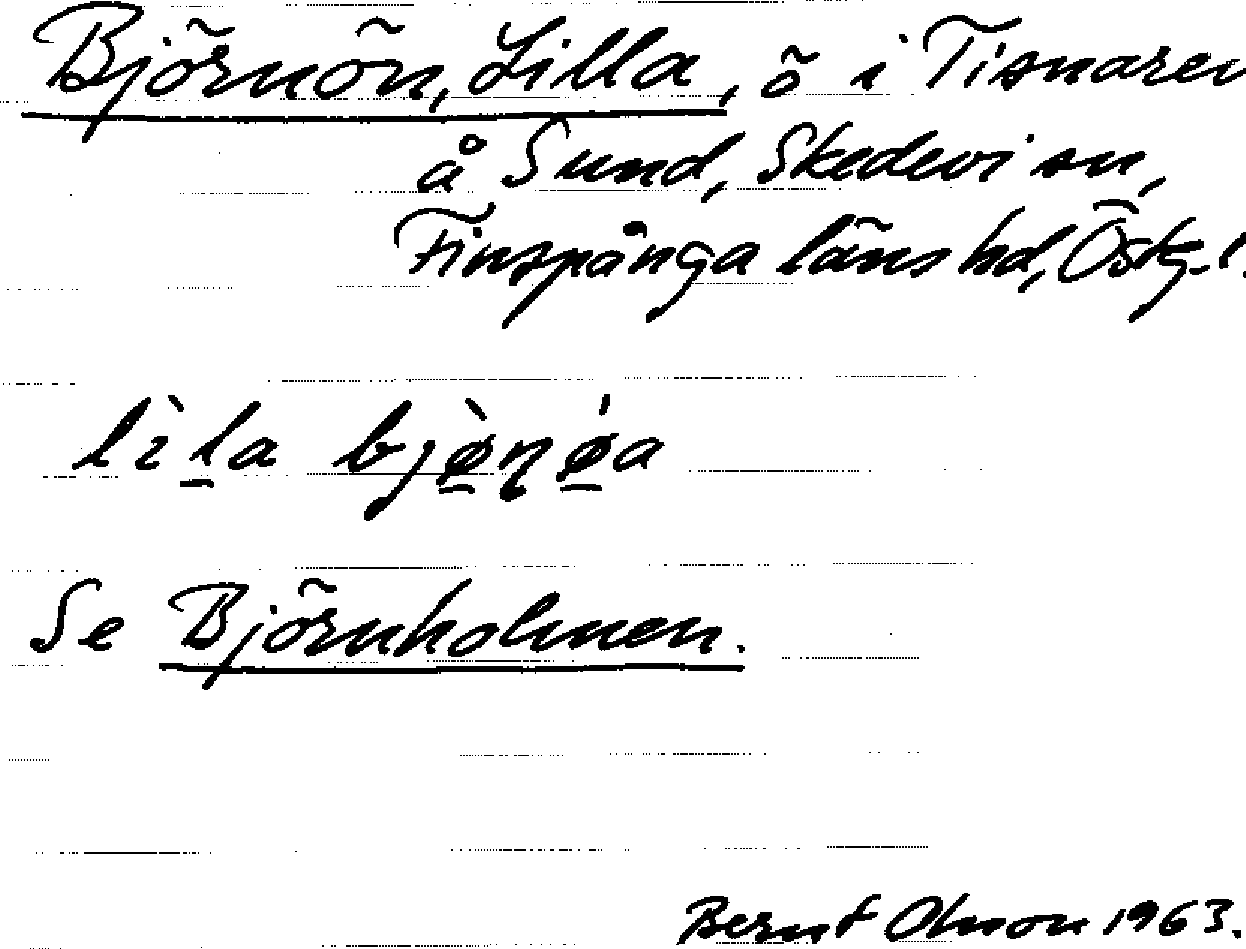 Björnön, Lilla, ö i Tisnaren
å Sund, Skedevi sn,
Finspånga läns hd, Östg. l.
lìla bjø̀ɳǿa
Se Björnholmen.
Bernt Olsson 1963.